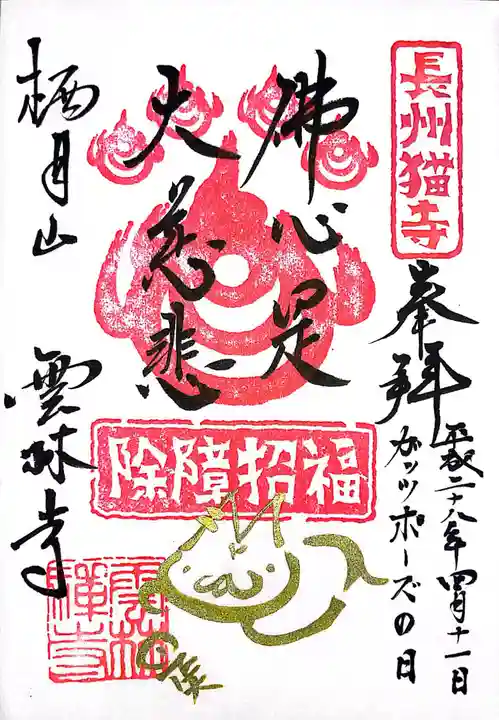 長州猫寺
奉拝
平成二十八年四月十一日
ガッツポーズの日
佛心是
大慈悲
除障招福
栖月山
雲林寺
雲林禅寺